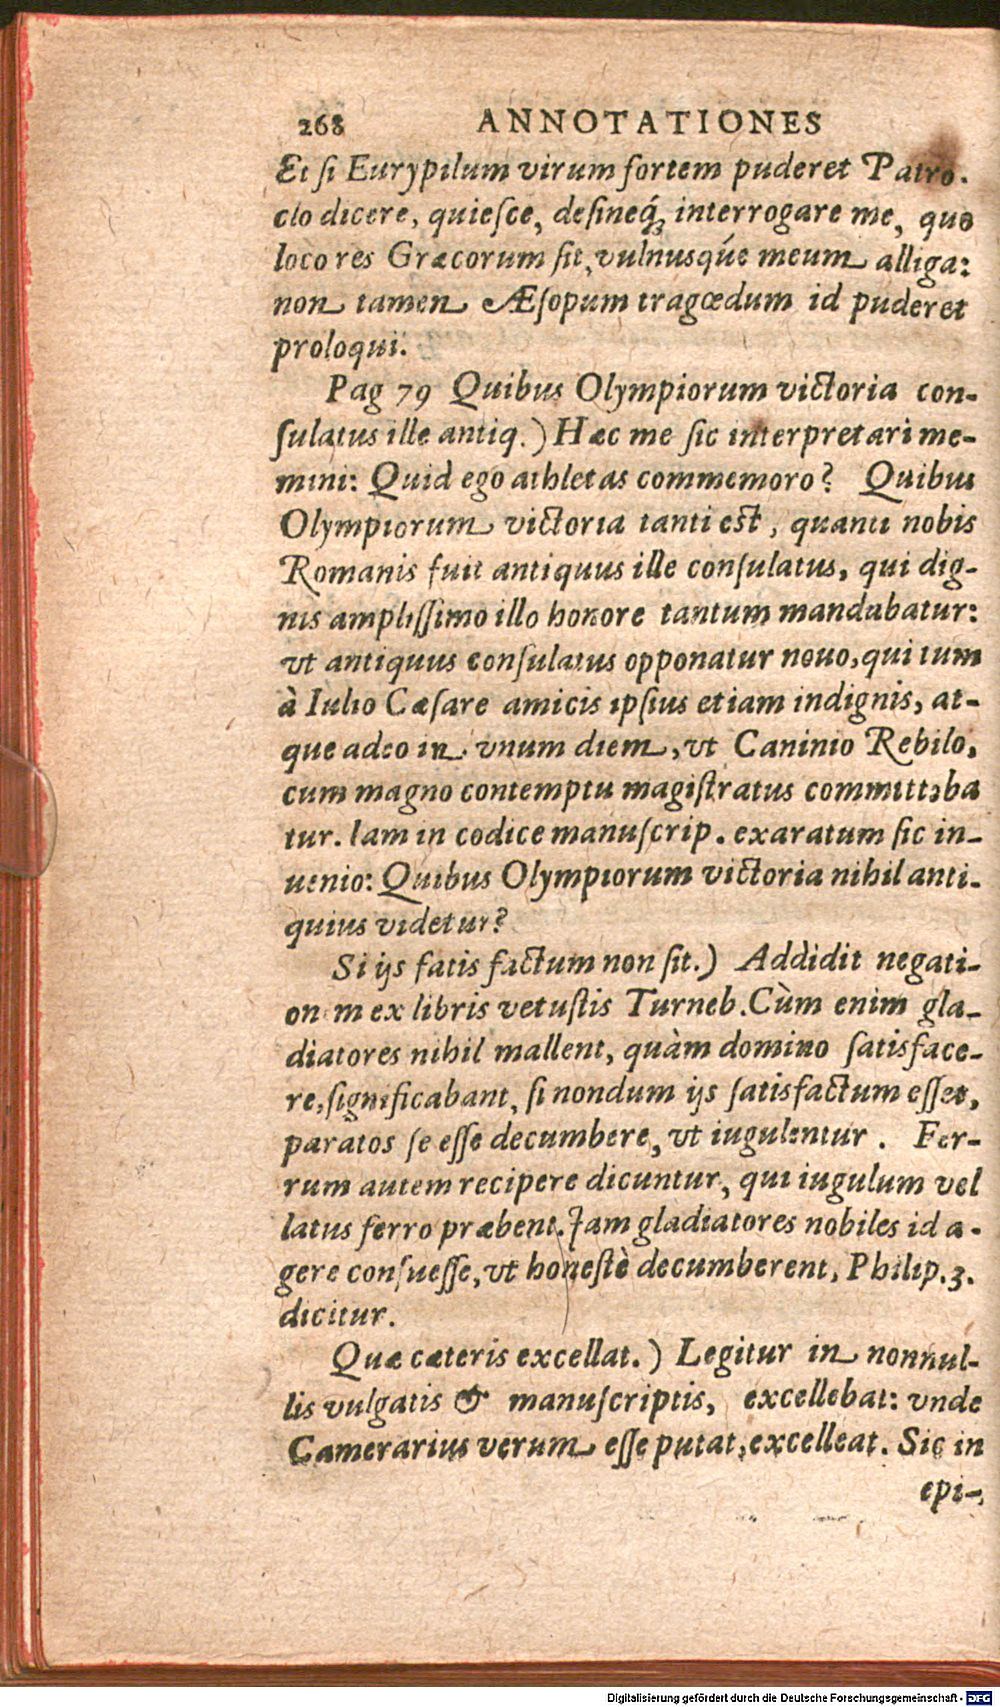 268 ANNOTATIONES
Et si Eurypilum virum fortem puderet Patro.
clo dicere, quiesce, desineq́ꝫ interrogare me, quo
loco res Græcorum sit, vulnusqúe meum alliga:
non tamen Æsopum tragœdum id puderet
proloqui.
Pag 79 Quibus Olympiorum victoria con-
sulatus ille antiq.) Hæc me sic interpretari me-
mini: Quid ego athletas commemoro? Quibus
Olympiorum victoria tanti est, quanti nobis
Romanis fuit antiquus ille consulatus, qui dig-
nis amplissimo illo honore tantum mandabatur:
vt antiquus consulatus opponatur nouo, qui tum
à Iulio Cæsare amicis ipsius etiam indignis, at-
que adeo in vnum diem, vt Caninio Rebilo,
cum magno contemptu magistratus committeba
tur. Iam in codice manuscrip. exaratum sic in-
uenio: Quibus Olympiorum victoria nihil anti-
quius videtur?
Si ijs satis factum non sit.) Addidit negati-
onem ex libris vetustis Turneb. Cùm enim gla-
diatores nihil mallent, quàm domino satisface-
re, significabant, si nondum ijs satisfactum esset,
paratos se esse decumbere, vt iugulentur. Fer-
rum autem recipere dicuntur, qui iugulum vel
latus ferro præbent. Iam gladiatores nobiles id a-
gere consuesse, vt honestè decumberent, Philip. 3.
dicitur.
Quæ cæteris excellat.) Legitur in nonnul-
lis vulgatis & manuscriptis, excellebat: vnde
Camerarius verum esse putat, excelleat. Sic in
epi-
Digitalisierung gefördert durch die Deutsche Forschungsgemeinschaft - DFG